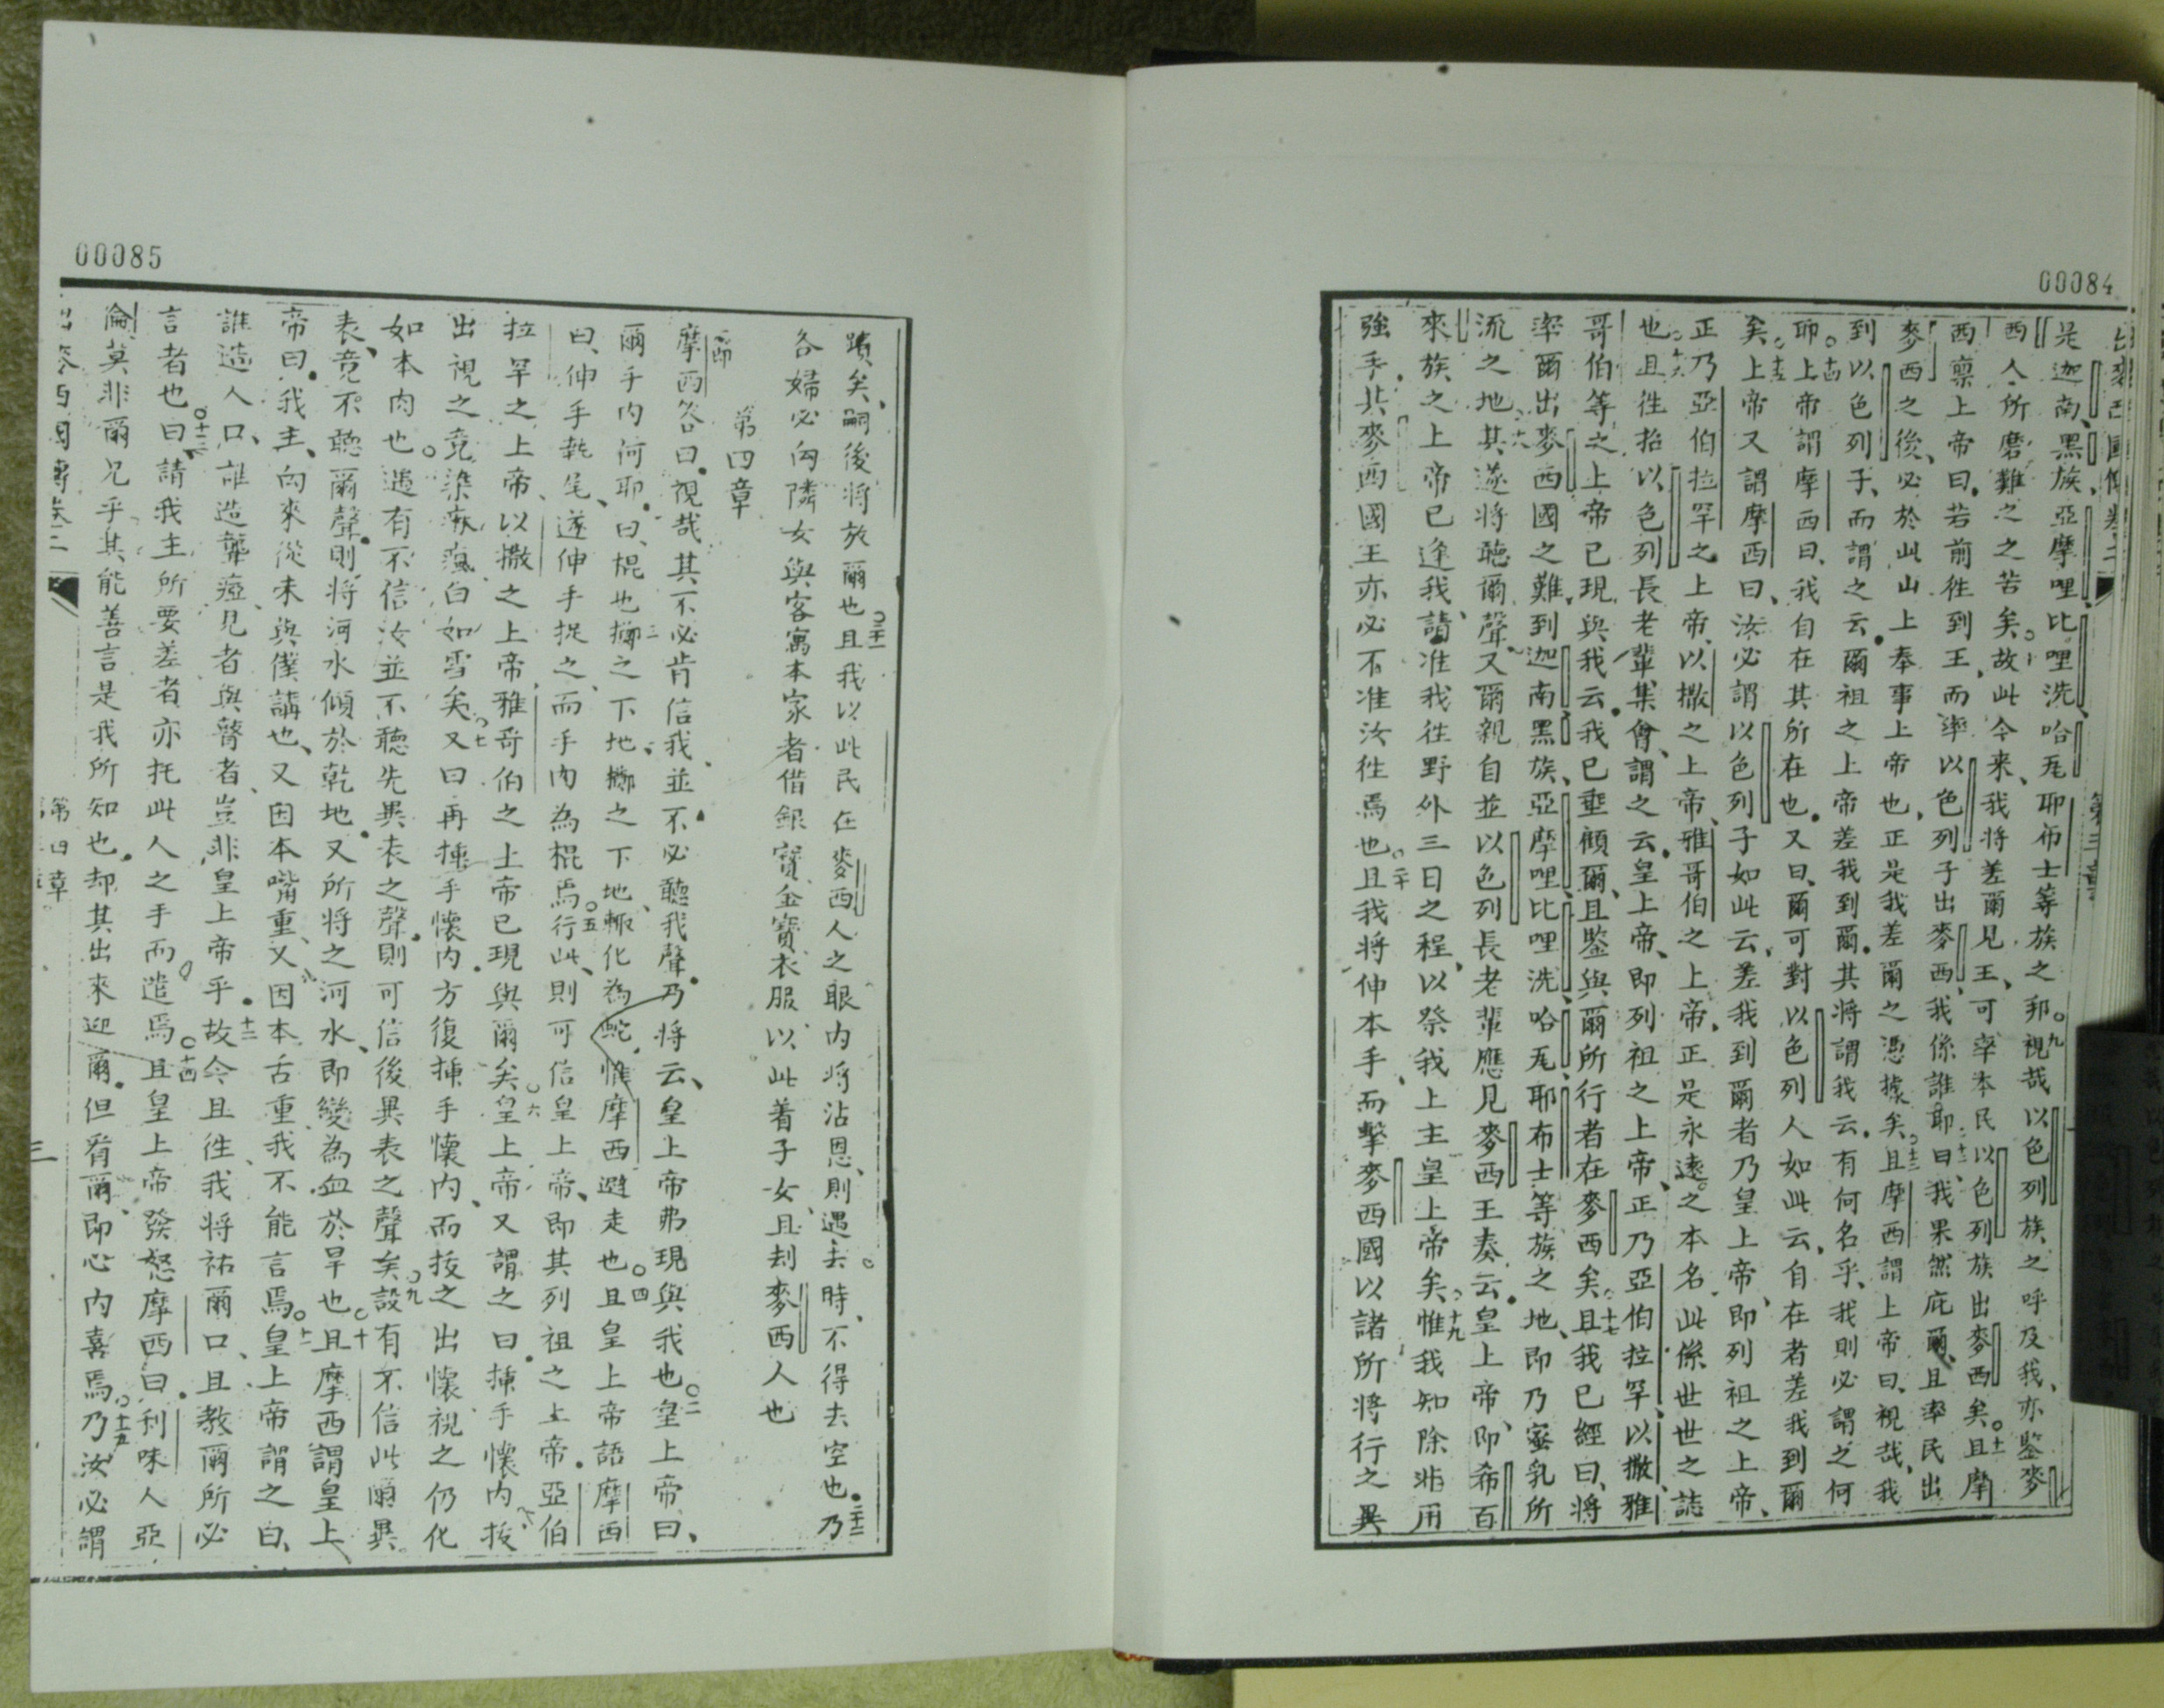 00084
是迦南黑族亞摩哩比哩洗哈旡耶布士等族之邦○九視哉以色列族之呼及我亦鑒麥
西人所磨難之之苦矣○十故此今來我將差爾見王可率本民以色列族出麥西矣○十一且摩
西禀上帝曰若前徃到王而率以色列子出麥西我係誰耶○十二曰我果然庇爾且率民出
麥西之後必於此山上奉事上帝也正是我差爾之憑據矣○十三且摩西謂上帝曰視哉我
到以色列子而謂之云爾祖之上帝差我到爾其將謂我云有何名乎我則必謂之何
耶○十四上帝謂摩西曰我自在其所在也又曰爾可對以色列人如此云自在者差我到爾
矣○十五上帝又謂摩西曰汝必謂以色列子如此云差我到爾者乃皇上帝即列祖之上帝
正乃亞伯拉罕之上帝以撒之上帝雅哥伯之上帝正是永遠之本名此係世世之誌
也○十六且徃招以色列長老輩集會謂之云皇上帝即列祖之上帝正乃亞伯拉罕以撒雅
哥伯等之上帝已現與我云我已垂顧爾且鑒與爾所行者在麥西矣○十七且我已經曰將
率爾出麥西國之難到迦南黑族亞摩哩比哩洗哈旡耶布士等族之地即乃蜜乳所
流之地○十八其遂將聽爾聲又爾親自並以色列長老輩應見麥西王奏云皇上帝即希百
來族之上帝已逢我請准我徃野外三日之程以祭我上主皇上帝矣○十九惟我知除非用
強手其麥西國王亦必不准汝徃焉也○二十且我將伸本手而擊麥西國以諸所將行之異
00085
蹟矣嗣後將放爾也○二十一且我以此民在麥西人之眼內將沾恩則遇去時不得去空也○二十二乃
各婦必向隣女與客寓本家者借銀寶金寶衣服以此着子女且刦麥西人也
第四章
一節摩西答曰視哉其不必肯信我並不必聽我聲乃將云皇上帝弗現與我也○二皇上帝曰
爾手內何耶曰棍也○三擲之下地擲之下地輙化為蛇惟摩西避走也○四且皇上帝語摩西
曰伸手執尾遂伸手捉之而手內為棍焉○五行此則可信皇上帝即其列祖之上帝亞伯
拉罕之上帝以撒之上帝雅哥伯之上帝已現與爾矣○六皇上帝又謂之曰揷手懷內拔
出視之竟染痳瘋白如雪矣○七又曰再揷手懷內方復揷手懷內而拔之出懷視之仍化
如本肉也○八遣有不信汝並不聽先異表之聲則可信後異表之聲矣○九設有不信此爾異
表竟不聽爾聲則將河水傾於乾地又所將之河水即變為血於旱也○十且摩西謂皇上
帝曰我主向來從未與僕講也又因本嘴重又因本舌重我不能言焉○十一皇上帝謂之曰
誰造人口誰造聾瘂見者與瞽者豈非皇上帝乎○十二故今且徃我將祐爾口且教爾所必
言者也○十三曰請我主所要差者亦托此人之手而遣焉○十四且皇上帝發怒摩西曰利味人亞
倫莫非爾兄乎其能善言是我所知也却其出來迎爾但看爾即心內喜焉○十五乃汝必謂
第四章
三